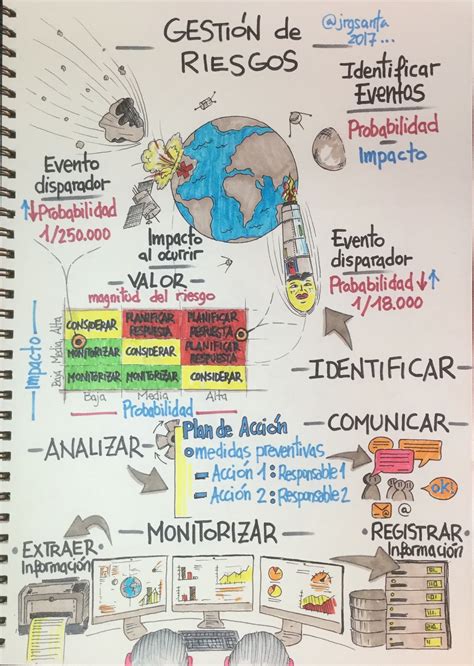 GESTIÓN de
RIESGOS
@jrgsanta
2017...
Identificar
Eventos
Probabilidad
Impacto
Evento
disparador
Probabilidad
1/250.000
Impacto
al ocurrir
VALOR
magnitud del riesgo
Evento
disparador
Probabilidad
1/18.000
Impacto
Alta
Media
Baja
CONSIDERAR
PLANIFICAR
RESPUESTA
PLANIFICAR
RESPUESTA
MONITORIZAR
CONSIDERAR
PLANIFICAR
RESPUESTA
MONITORIZAR
MONITORIZAR
CONSIDERAR
Baja
Media
Alta
Probabilidad
IDENTIFICAR
ANALIZAR
Plan de Acción
medidas preventivas
- Acción 1: Responsable 1
- Acción 2: Responsable 2
COMUNICAR
OK!
@
MONITORIZAR
EXTRAER
Información
REGISTRAR
Información